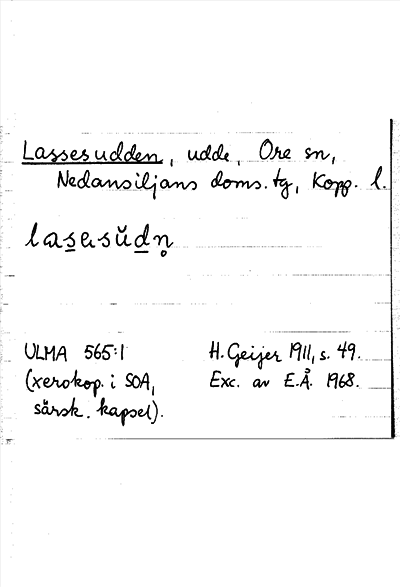 Lassesudden, udde, Ore sn,
Nedansiljans doms. tg, Kopp. l.
las̲asŭd̲n̥
ULMA 565:1
(xerokop. i SOA,
särsk. kapsel).
H. Geijer 1911, s. 49.
Exc. av E.Å. 1968.